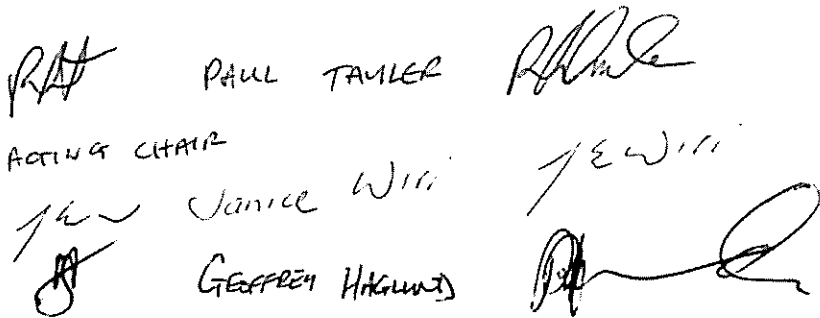 PAUL TAYLER
ACTING CHAIR
JEW Janice Wiri JEWiri
GEOFFREY HAGLUND